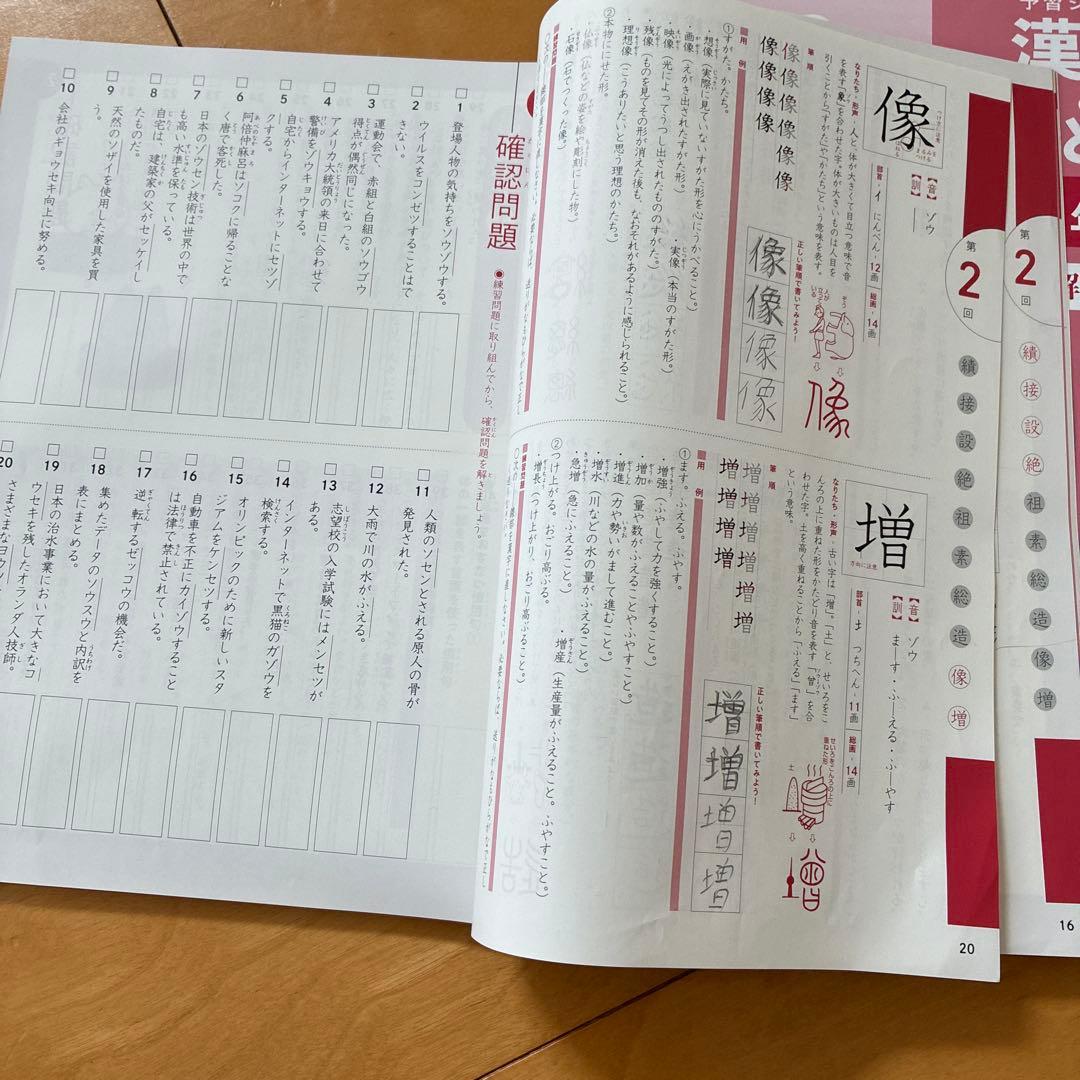 予習シ
漢
と
第2回
績 接 設 絶 祖 素 総 造 像 増
16
第2回
績 接 設 絶 祖 素 総 造 像 増
像
【音】ゾウ
【訓】
部首・イ にんべん・12画 総画・14画
なりたち・形声 人と、体が大きくて目立つ意味で音
を表す「象」を合わせた字。体が大きいものは人目を
引くことから「すがた」や「かたち」という意味を表す。
筆順
像像像像像像像像像像
正しい筆順で書いてみよう!
像像像像
用例
①すがた。かたち。
・想像(実際に見ていないすがた形を心にうかべること。)
・画像(えがき出されたすがた形。)
・実像(本当のすがた形。)
・映像(光によってうつし出されたもののすがた。)
・残像(ものを見てその形が消えた後も、なおそれがあるように感じられること。)
・理想像(こうありたいと思う理想のかたち。)
②本物ににせた形。
・仏像(仏などの姿を絵や彫刻にした物。)
・石像(石でつくった像。)
練習問題
増
方向に注意
【音】ゾウ
【訓】ま―す・ふ―える・ふ―やす
部首・土 つちへん・11画 総画・14画
なりたち・形声 古い字は「增」。「土」と、せいろをこ
んろの上に重ねた形をかたどり音を表す「曽」を合
わせた字。土を高く重ねることから「ふえる」「ます」
という意味。
せいろをこんろの上に重ねた形
土
筆順
増増増増増増増増増
正しい筆順で書いてみよう!
増増増増
用例
①ます。ふえる。ふやす。
・増強(ふやして力を強くすること。)
・増加(量や数がふえることやふやすこと。)
・増進(力や勢いがまして進むこと。)
・増水(川などの水の量がふえること。)
・急増(急にふえること。)
・増産(生産量がふえること。ふやすこと。)
②つけ上がる。おごり高ぶる。
・増長(つけ上がり、おごり高ぶること。)
練習問題
20
確認問題
●練習問題に取り組んでから、確認問題を解きましょう。
1 登場人物の気持ちをソウゾウする。
2 ウイルスをコンゼツすることはで
きない。
3 運動会で、赤組と白組のソウゴウ
得点が偶然同じになった。
4 アメリカ大統領の来日に合わせて
警備をゾウキョウする。
5 自宅からインターネットにセツゾ
クする。
6 阿倍仲麻呂はソコクに帰ることな
く唐で客死した。
7 日本のゾウセン技術は世界の中で
も高い水準を保っている。
8 自宅は、建築家の父がセッケイし
たものだ。
9 天然のソザイを使用した家具を買
う。
10 会社のギョウセキ向上に努める。
11 人類のソセンとされる原人の骨が
発見された。
12 大雨で川の水がふえる。
13 志望校の入学試験にはメンセツが
ある。
14 インターネットで黒猫のガゾウを
検索する。
15 オリンピックのために新しいスタ
ジアムをケンセツする。
16 自動車を不正にカイゾウすること
は法律で禁止されている。
17 逆転するゼッコウの機会だ。
18 集めたデータのソウスウと内訳を
表にまとめる。
19 日本の治水事業において大きなコ
ウセキを残したオランダ人技師。
20 さまざまなヨウソ